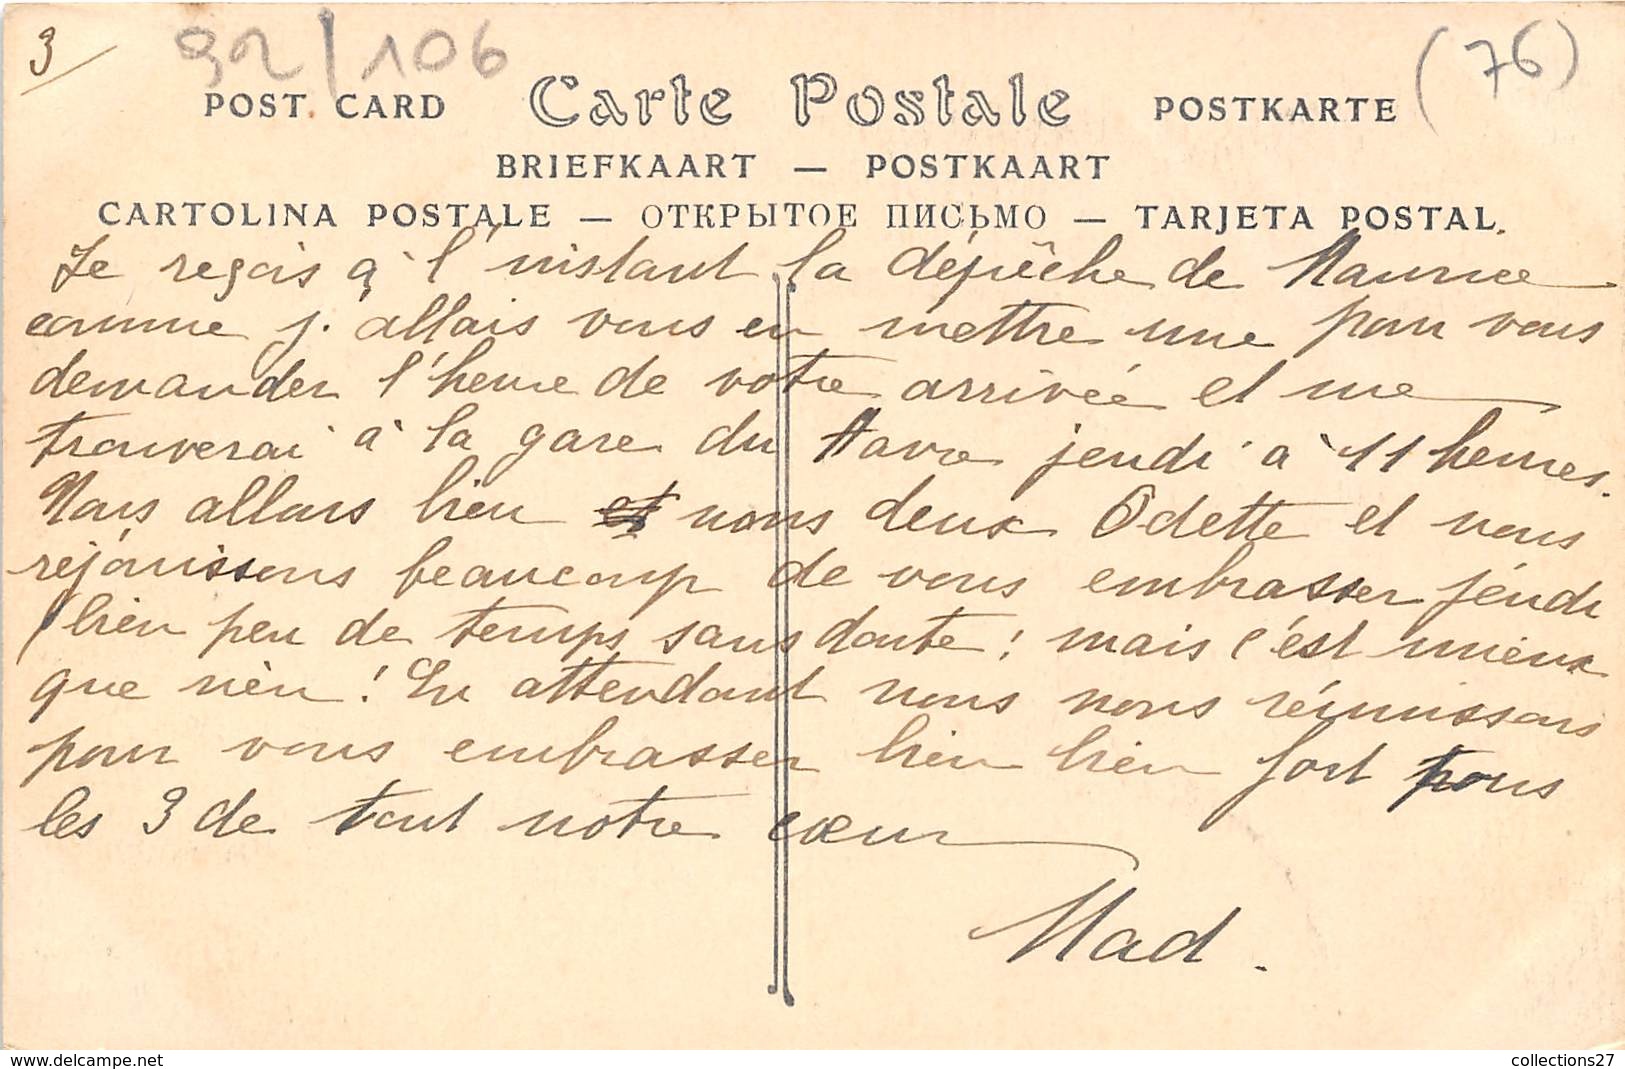 3/
92/106
(76)
POST CARD Carte Postale POSTKARTE
BRIEFKAART — POSTKAART
CARTOLINA POSTALE — ОТКРЫТОЕ ПИСЬМО — TARJETA POSTAL.
Je reçois à l'instant la dépêche de Maurice
comme j'allais vous en mettre une pour vous
demander l'heure de votre arrivée et me
trouverai à la gare du Havre jeudi à 11 heures.
Nous allons bien et nous deux Odette et nous
réjouissons beaucoup de vous embrasser jeudi
(bien peu de temps sans doute ! mais c'est mieux
que rien ! En attendant nous nous réunissons
pour vous embrasser bien bien fort tous
les 3 de tout notre cœur
Mad.
collections27